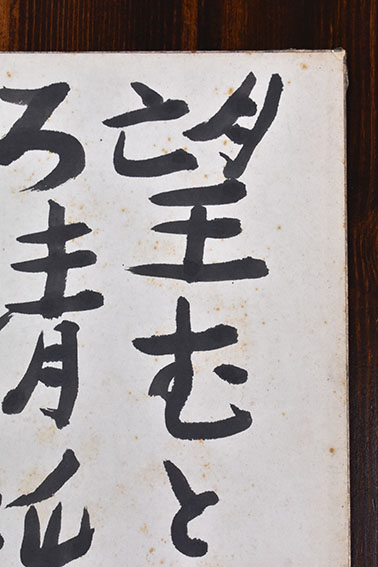 望むと
ろ青